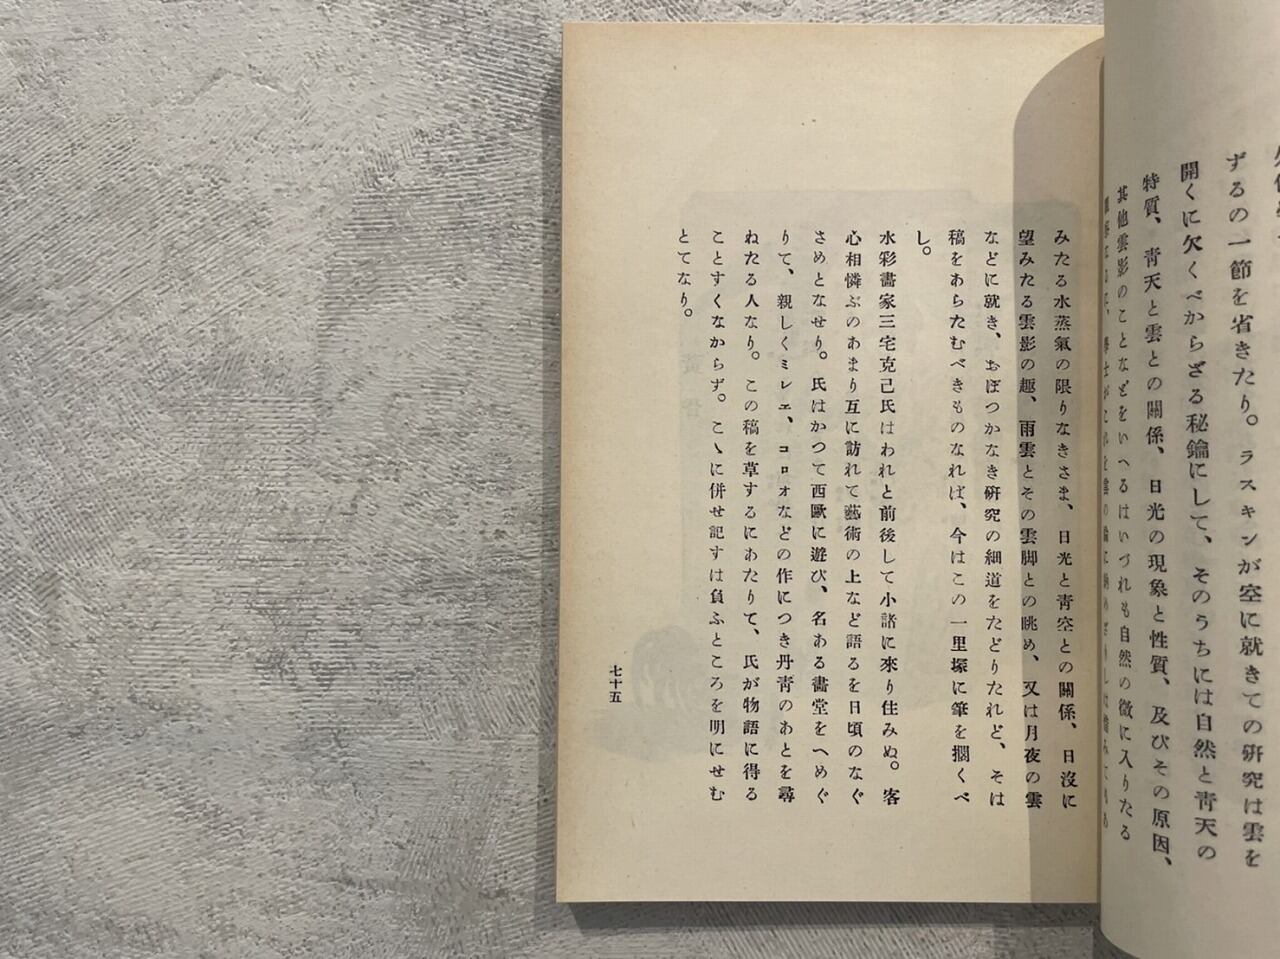 ずるの一節を省きたり。ラスキンが空に就きての硏究は雲を
開くに欠くべからざる秘鑰にして、そのうちには自然と靑天の
特質、靑天と雲との關係、日光の現象と性質、及びその原因、
其他雲影のことなどをいへるはいづれも自然の微に入りたる
みたる水蒸氣の限りなきさま、日光と靑空との關係、日沒に
望みたる雲影の趣、雨雲とその雲脚との眺め、又は月夜の雲
などに就き、おぼつかなき硏究の細道をたどりたれど、そは
稿をあらたむべきものなれば、今はこの一里塚に筆を擱くべ
し。
水彩畵家三宅克己氏はわれと前後して小諸に來り住みぬ。客
心相憐ぶのあまり互に訪れて藝術の上など語るを日頃のなぐ
さめとなせり。氏はかつて西歐に遊び、名ある畵堂をへめぐ
りて、親しくミレエ、コロオなどの作につき丹靑のあとを尋
ねたる人なり。この稿を草するにあたりて、氏が物語に得る
ことすくなからず。こゝに併せ記すは負ふところを明にせむ
とてなり。
七十五